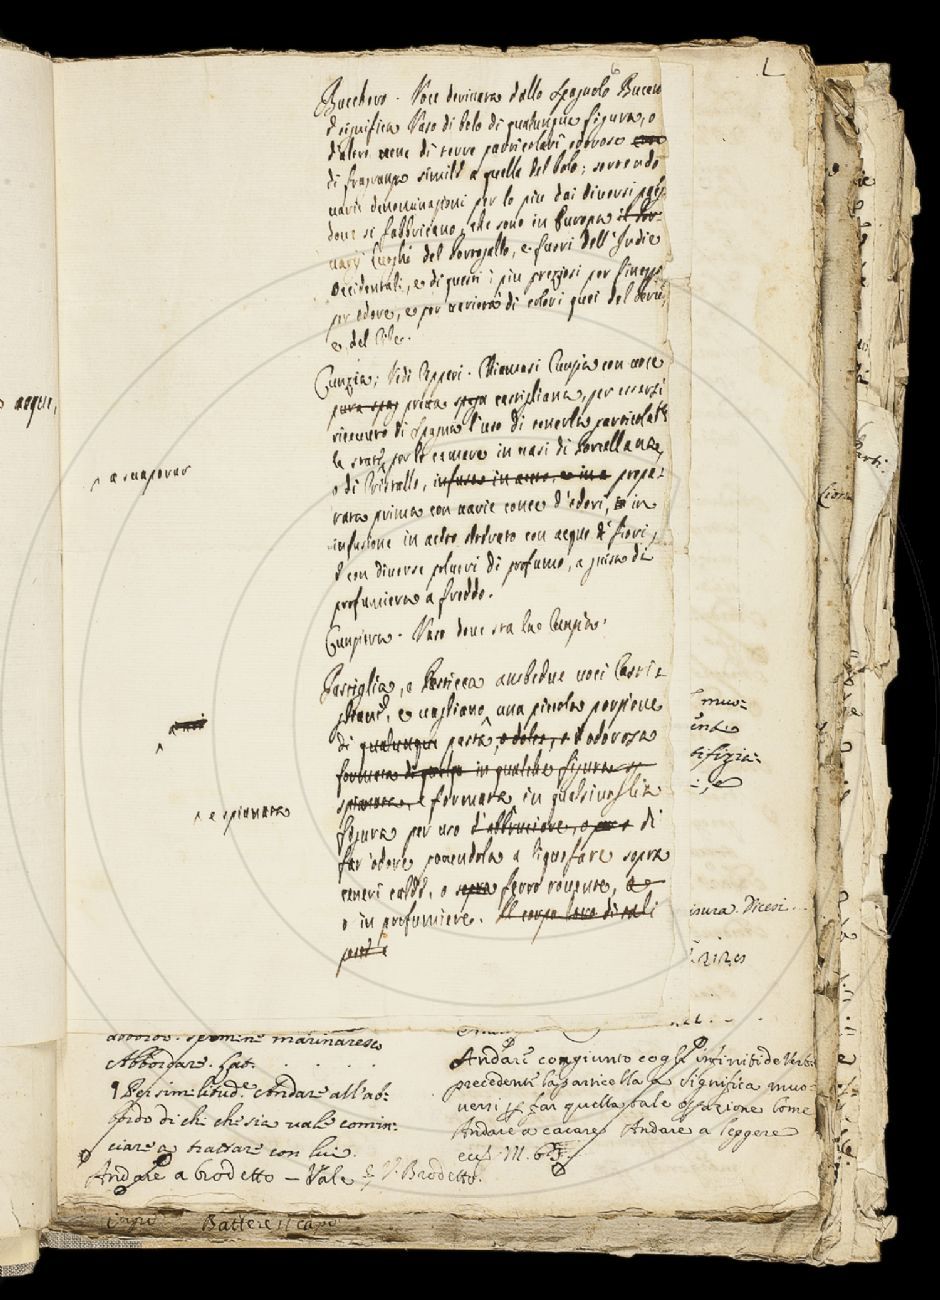 L
Bucchero. Voce derivata dallo Spagnolo Bucaro
e significa Vaso di bolo di qualunque figura, o
d'altre terre particolari odorose
di fragranza simili a quella del bolo; sortendo
varie denominazioni per lo più dai diversi paesi
dove si fabbricano, che sono in Europa il Por-
varj luoghi del Portogallo, e fuori dell'Indie
Occidentali, e di questi i più preziosi per finezza
per odore, e per varietà di colori quei del
e del Cile.
Cunzia; Vedi Cipperi. Chiamasi Cunzia con voce
pura spag prima spag castigliana, per essersi
ricevuto di Spagna l'uso di tenerla particolar.te
la state per le camere in vasi di Porcellana,
o di Cristallo, infusa in aceto, e in a prepa-
rata prima con varie conce d'odori, in
infusione in aceto stillato con acque di fiori,
e con diverse polveri di profumo, a guisa di
profumiera a freddo.
Cunziera. Vaso dove sta la Cunzia.
Pastiglia, e Pasticca ambedue voci Casti-
gliane, e vagliono una piccola porzione
di qualunque pasta, odorosa
formata di in qualche figura
spianata, e formata in qualsivoglia
figura per uso d'abbruciare, o di
far odore ponendola a liquefare sopra
ceneri calde, o sopra ferro rovente,
o in profumiere. Il corpo loro di tali
acque,
^ a svaporar
^ e spianata
muo-
tifizia-
isura. Dicesi
abbordo. Termine marinaresco
Abbordare. Lat.
¶ Per similitud.e Andare all'ab-
bordo di chi che sia vale comin-
ciare a trattare con lui.
Andare a brodetto – Vale V. Brodetto.
Andare congiunto cogli infiniti de Verbi
precedenti la particella a significa muo-
versi p far quella tale operazione come
Andare a cacare Andare a leggere
Battere il capo